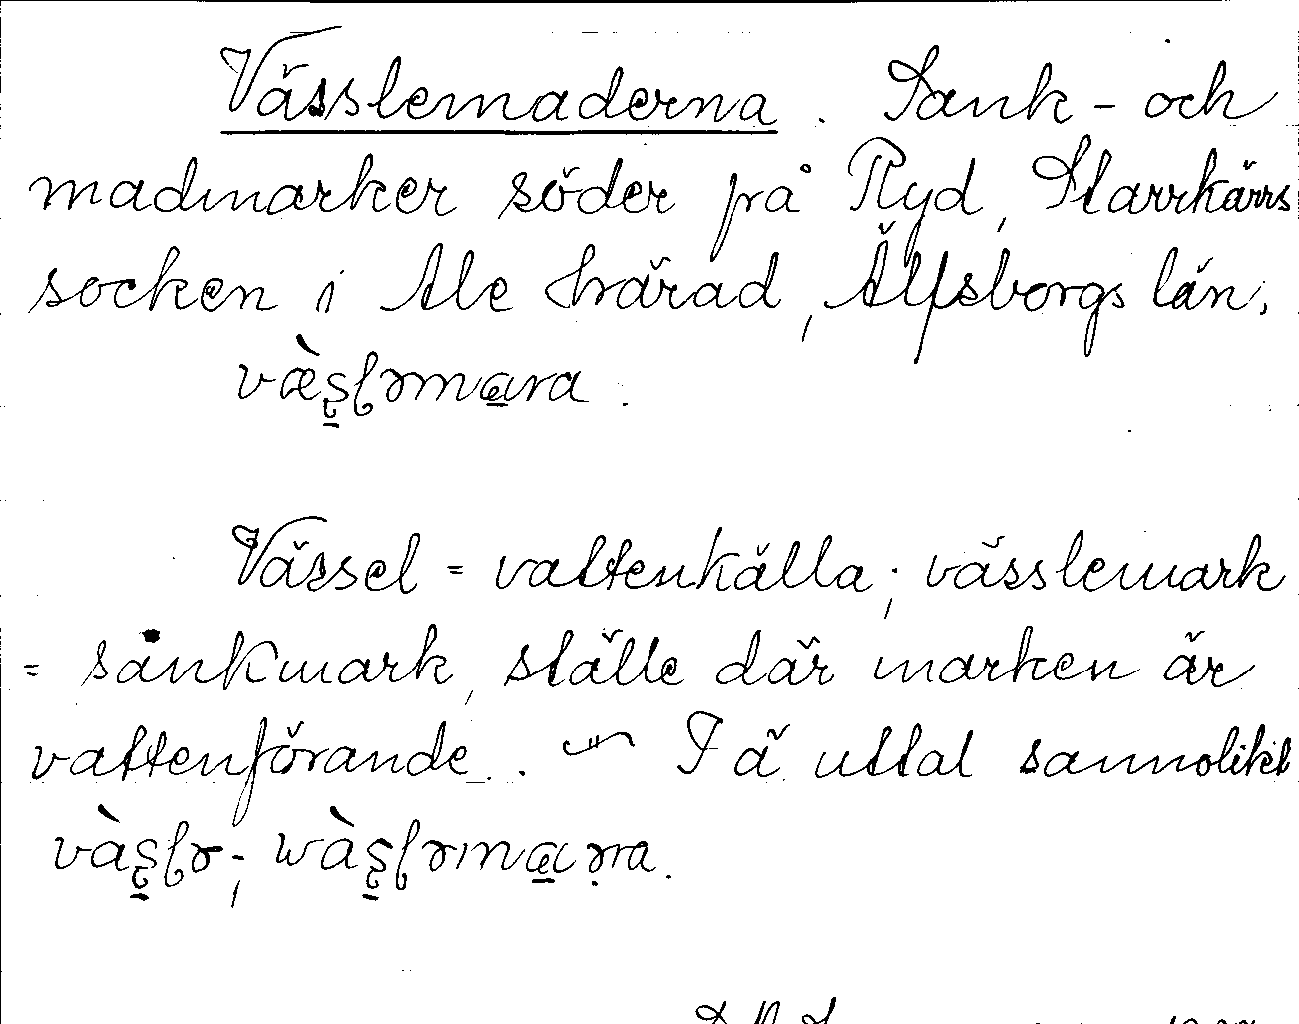 Vässlemaderna. Sank- och
madmarker söder på Ryd, Starrkärrs
socken i Ale härad, Älfsborgs län.
Vässel = vattenkälla; vässlemark
= sänkmark, ställe där marken är
vattenförande. — I ä. uttal sannolikt